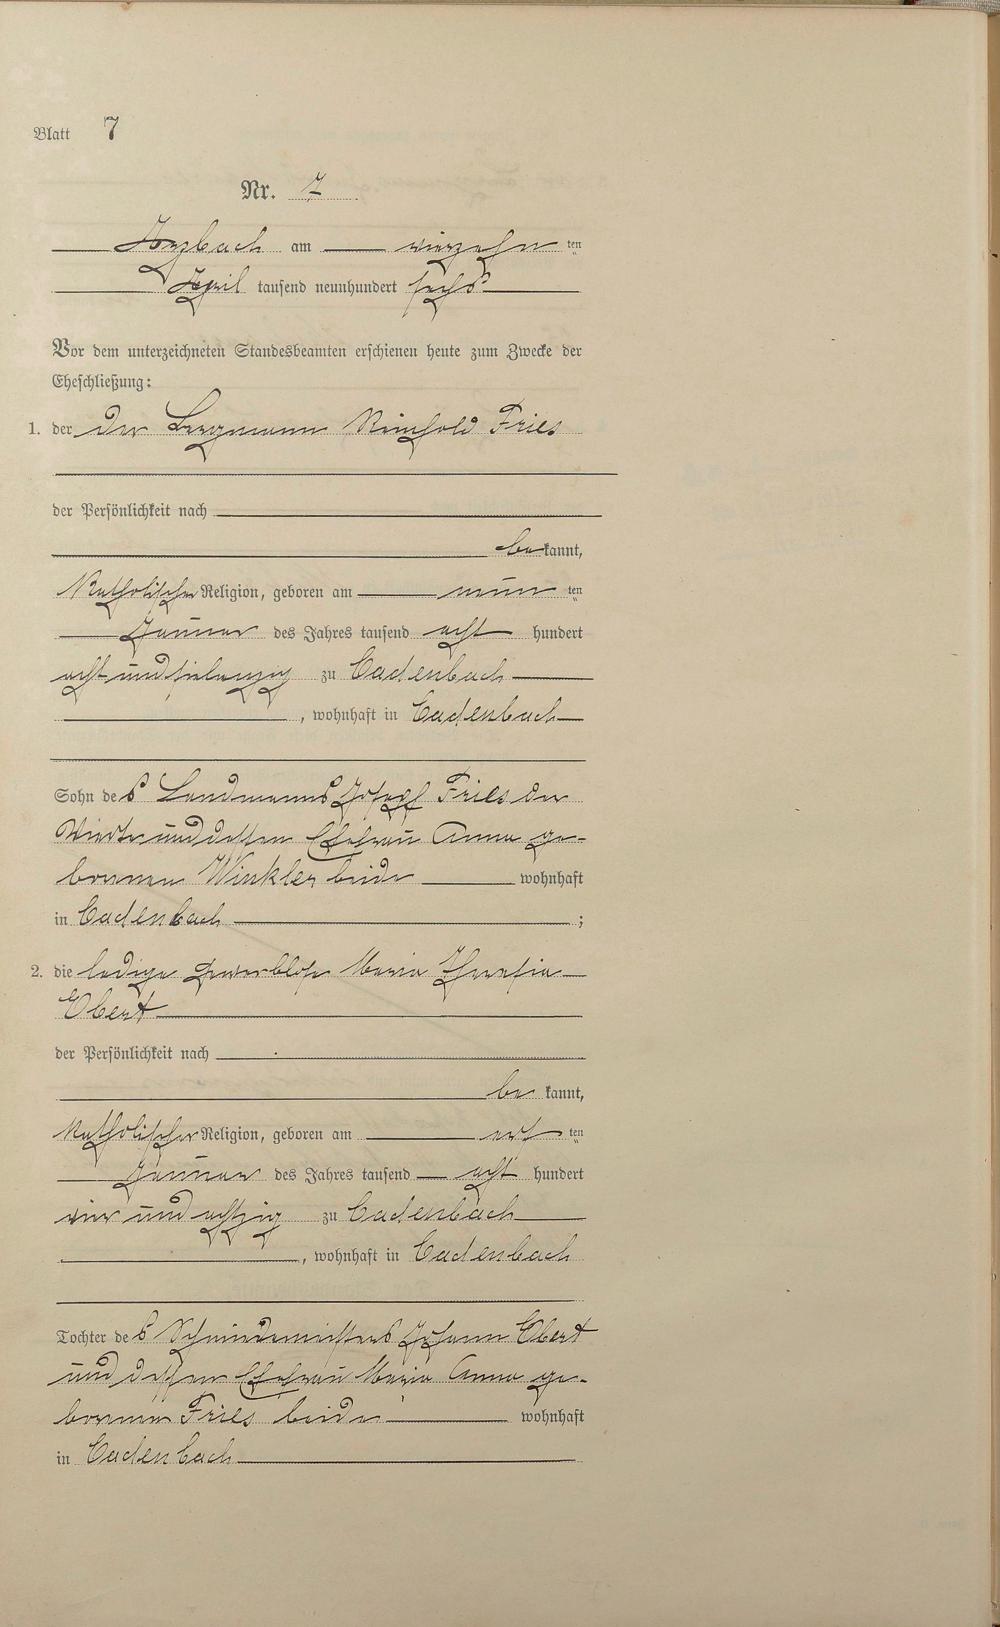 Blatt 7
Nr. 7
Arzbach am vierzehn ten
April tausend neunhundert sechs
Vor dem unterzeichneten Standesbeamten erschienen heute zum Zwecke der
Eheschließung:
1. der der Bergmann Reinhold Fries
der Persönlichkeit nach
be kannt,
Katholischer Religion, geboren am neun ten
Januar des Jahres tausend acht hundert
acht und siebenzig zu Cadenbach
, wohnhaft in Cadenbach
Sohn des Landmanns Josef Fries der
Vierte und dessen Ehefrau Anna ge-
borenen Winkler beide wohnhaft
in Cadenbach ;
2. die ledige gewerblose Maria Theresia
Ebert
der Persönlichkeit nach
be kannt,
Katholischer Religion, geboren am ten
Januar des Jahres tausend acht hundert
vier und achtzig zu Cadenbach
, wohnhaft in Cadenbach
Tochter des Schmiedemeisters Johann Ebert
und dessen Ehefrau Maria Anna ge-
borenen Fries beide wohnhaft
in Cadenbach